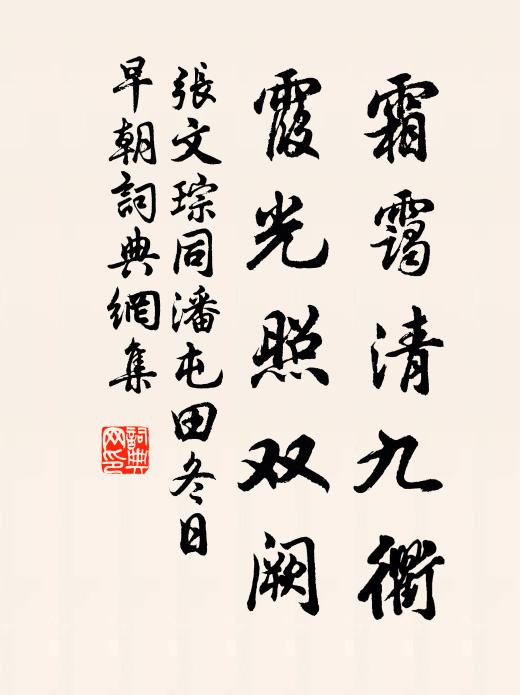 霜靄清九衢
霞光照双阙
張文琮同潘屯田冬日
早朝詞典網集
詞典
网印